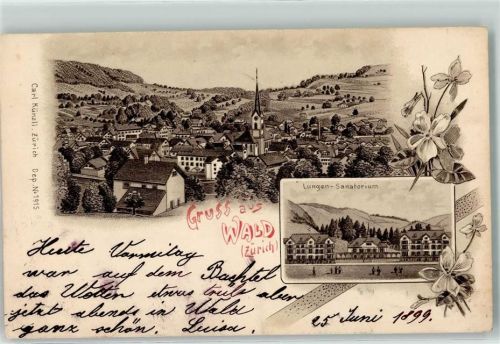 Carl Künzli, Zürich Dep. № 1915
Gruss aus
WALD
(Zürich)
Lungen-Sanatorium
Heute Vormittag
war auf dem Bachtel
das Wetter etwas trüb aber
jetzt abends in Wald
ganz schön. Luisa.
25 Juni 1899.